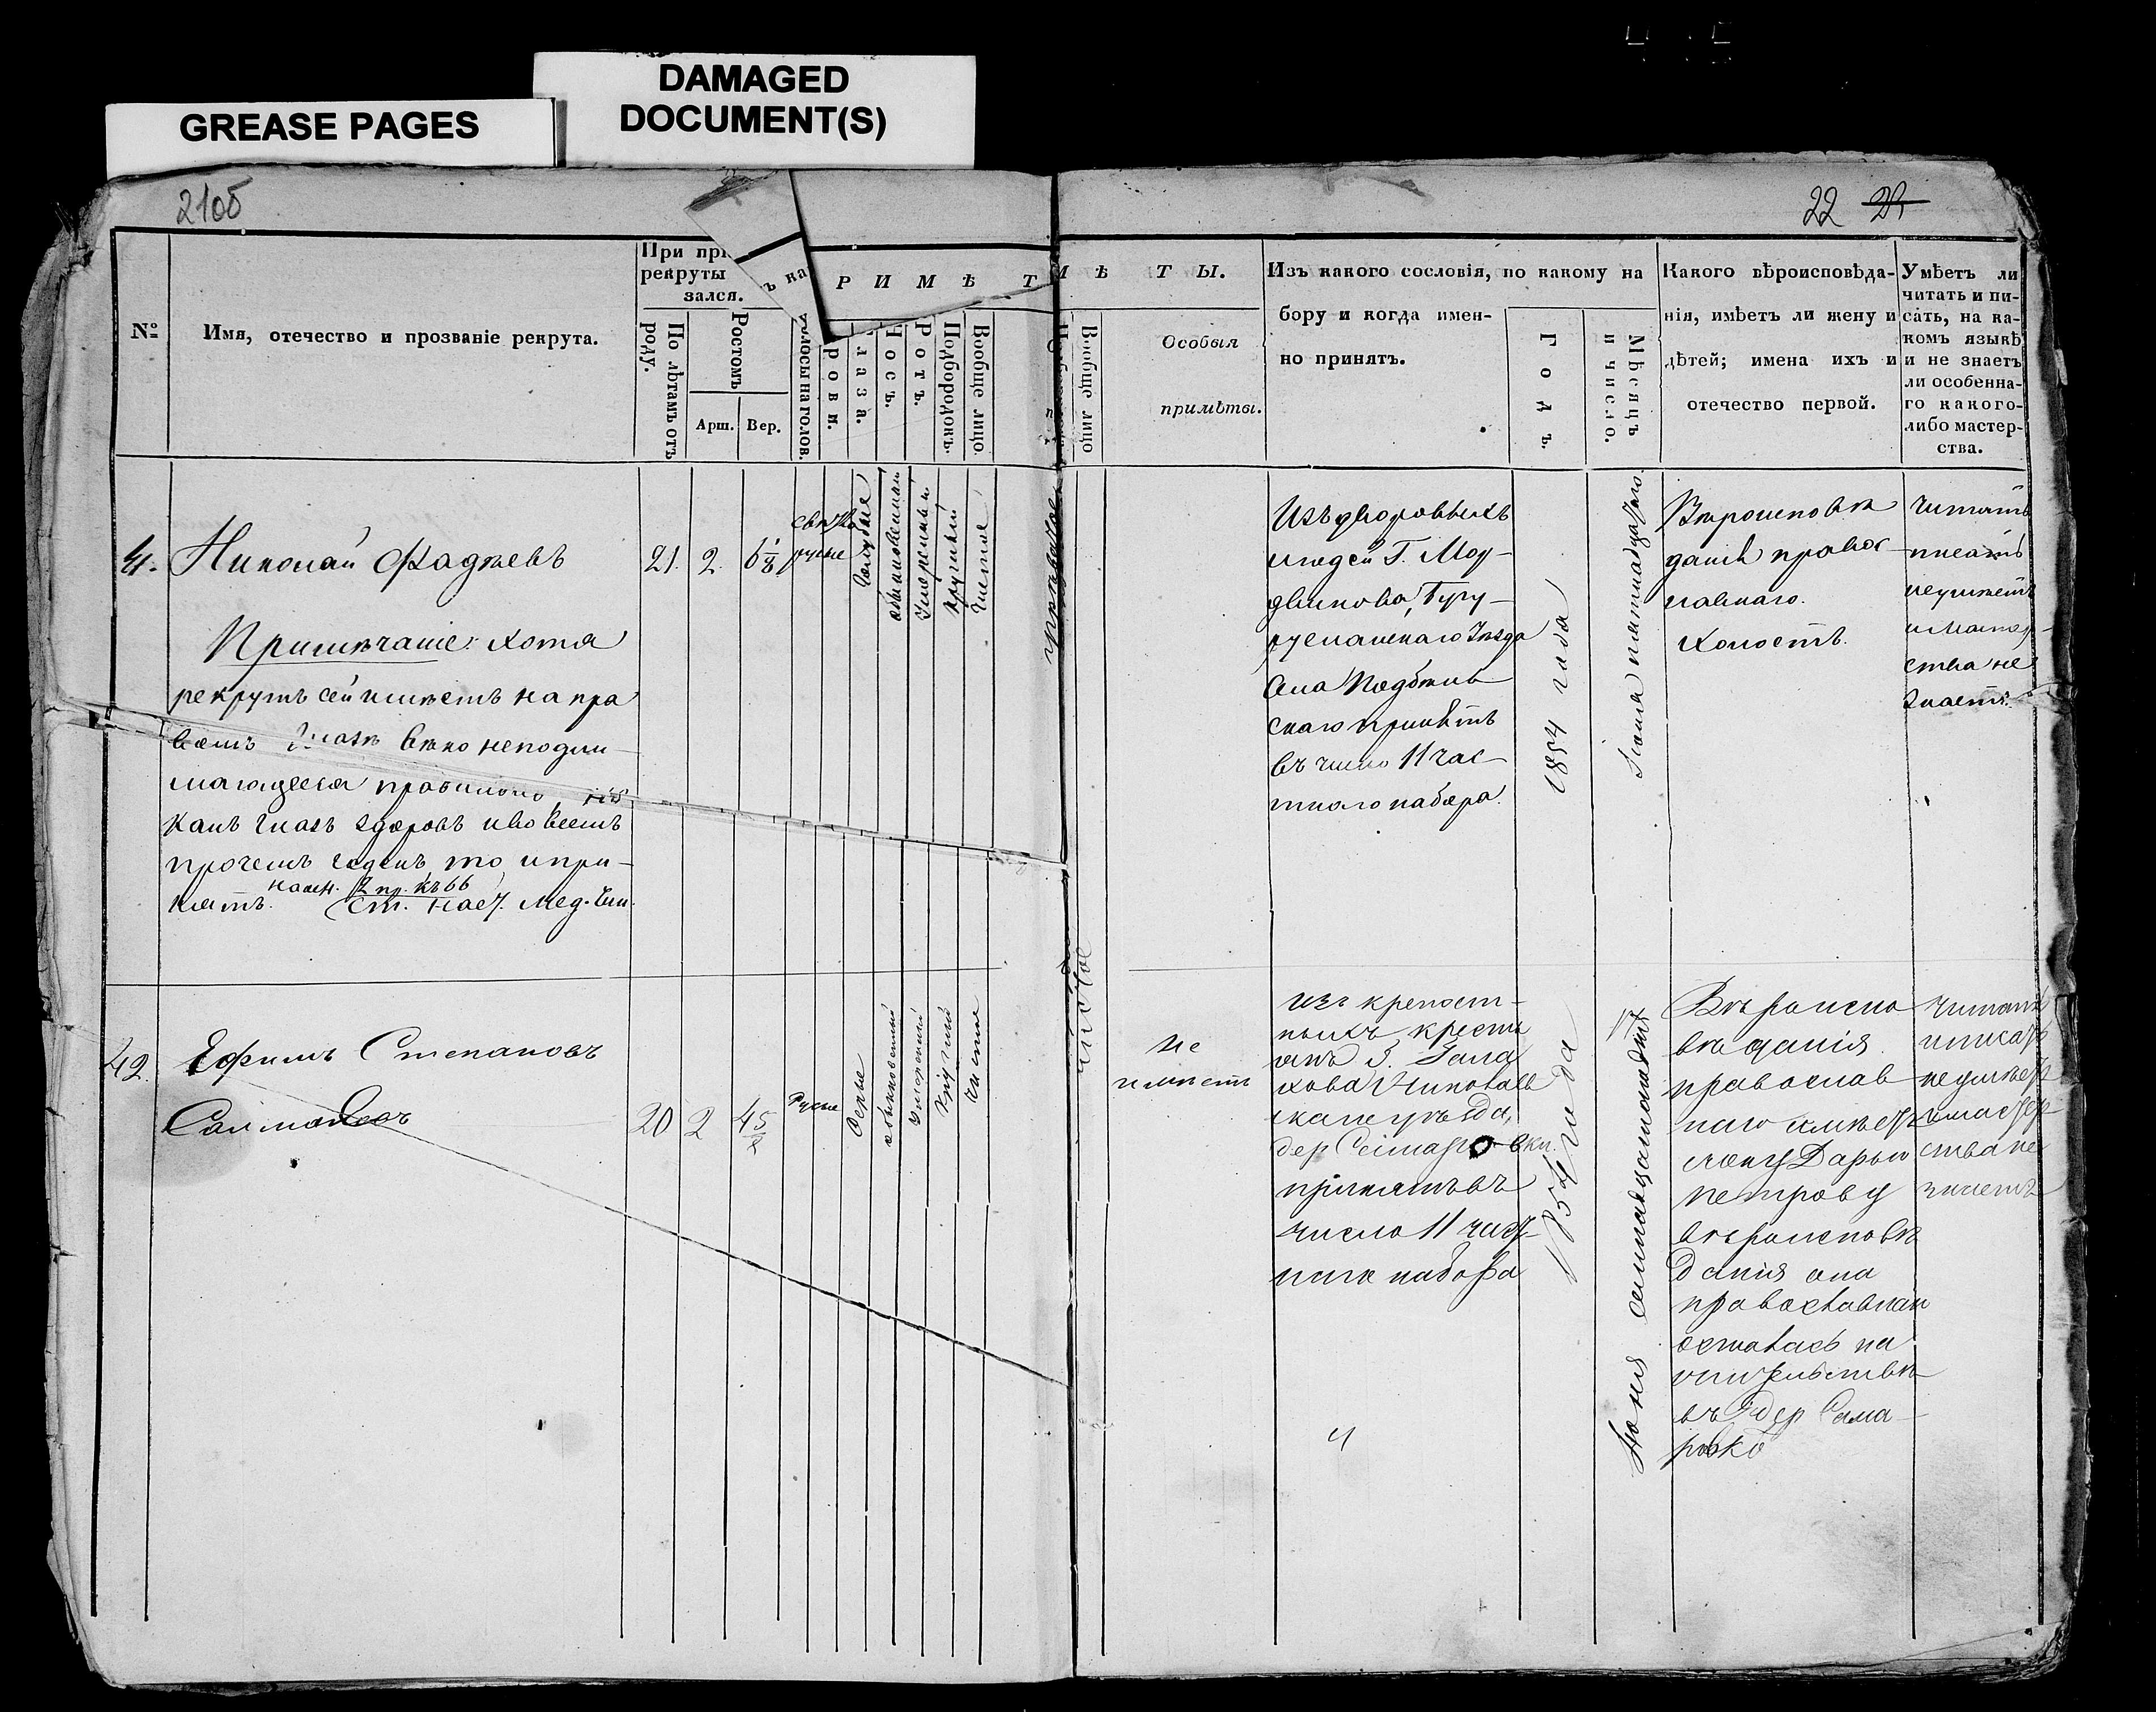 GREASE PAGES
DAMAGED
DOCUMENT(S)
210б
22 21
№
Имя, отечество и прозваніе рекрута.
При прі
рекруты
ъ ка
зался.
По лѣтамъ отъ
роду.
Ростомъ
Арш. Вер.
Р И М Ѣ Т
Волосы на голов.
рови.
лаза.
Носъ.
Ротъ.
Подбородокъ.
Вообще лицо.
М Ѣ Т Ы.
Вообще лицо
Особыя
примѣты.
Изъ какого сословія, по какому на
бору и когда имен-
но принятъ.
Годъ.
Мѣсяцъ
и число.
Какого вѣроисповѣда-
нія, имѣетъ ли жену и
дѣтей; имена ихъ и
отечество первой.
Умѣетъ ли
читать и пи-
сать, на ка-
комъ языкѣ
и не знаетъ
ли особенна-
го какого-
либо мастер-
ства.
4.
Николай Фадѣевъ
Примѣчаніе: хотя
рекрутъ сей имѣетъ на пра
вомъ глазѣ вѣко неподни-
мающееся
какъ глазъ здоровъ и во всемъ
прочемъ годенъ то и при-
нятъ. 2 пр. къ 66
ст. Наст. Мед. Чин.
21. 2. 6 1/8
свѣтло
русые
голубые
обыкновенный
умѣренный
круглый
чистое
Изъ дворовыхъ
людей Г. Мор-
двинова, Бугу-
русланскаго уѣзда
села
принятъ
въ число 11 час-
тнаго набора.
1854 года
Іюня пятнадцатаго
Вѣроисповѣ
данія правос-
лавнаго.
Холостъ.
читать
писать
неумѣетъ
и мастер-
ства не
знаетъ.
42.
Ефимъ Степановъ
20 2 4 5/8
Русые
Сѣрые
обыкновенный
умѣренный
круглый
чистое
чистое
не
имѣетъ
изъ крепост-
ныхъ кресть
янъ
Николаев
скаго уѣзда,
дер
принятъ въ
число 11 част
наго набора
1854 года
Іюня семнадцатаго
Вѣроиспо
вѣданія
православ
наго имѣетъ
жену Дарью
Петрову
вѣроисповѣ
данія она
православнаго
осталась на
жительствѣ
въ дер Сама-
ровкѣ
читать
и писать
не умѣетъ
и мастер
ства не
знаетъ